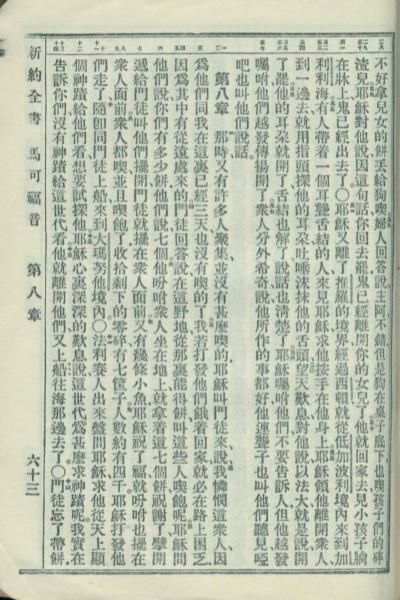 不好拿兒女的餅去給狗喫婦人回答說主阿不錯但是狗在桌子底下也喫孩子們的碎
渣兒耶穌對他說因這句話你回去罷鬼已經離開你的女兒了他就回家去見小孩子躺
在牀上鬼已經出去了〇耶穌又離了推羅的境界經過西頓就從低加波利境內來到加
利利海有人帶着一個耳聾舌結的人來見耶穌求他按手在他身上耶穌領他離開衆人
到一邊去就用指頭探他的耳朶吐唾沫抹他的舌頭望天歎息對他說以法大就是說開
了罷他的耳朶就開了舌結也解了說話也清楚了耶穌囑咐他們不要告訴人但他越發
囑咐他們越發傳揚開了衆人分外希奇說他所作的事都好他連聾子也叫他們聽見啞
吧也叫他們說話
第八章 那時又有許多人聚集並沒有甚麼喫的耶穌叫門徒來說我憐憫這衆人因
爲他們同我在這裏已經三天也沒有喫的了我若打發他們餓着回家就必在路上困乏
因爲其中有從遠處來的門徒回答說在這野地從那裏能得餅叫這些人喫飽呢耶穌問
他們說你們有多少餅他們說七個他吩咐衆人坐在地上就拿着這七個餅祝謝了擘開
遞給門徒叫他們擺開門徒就擺在衆人面前又有幾條小魚耶穌祝了福就吩咐也擺在
衆人面前衆人都喫並且喫飽了收拾剩下的零碎有七筐子人數約有四千耶穌打發他
們走了隨卽同門徒上船來到大瑪努他境內〇法利賽人出來盤問耶穌求他從天上顯
個神蹟給他們看想要試探他耶穌心裏深深的歎息說這世代爲甚麼求神蹟呢我實在
告訴你們沒有神蹟給這世代看他就離開他們又上船往海那邊去了〇門徒忘了帶餅
新約全書 馬可福音 第八章 六十三